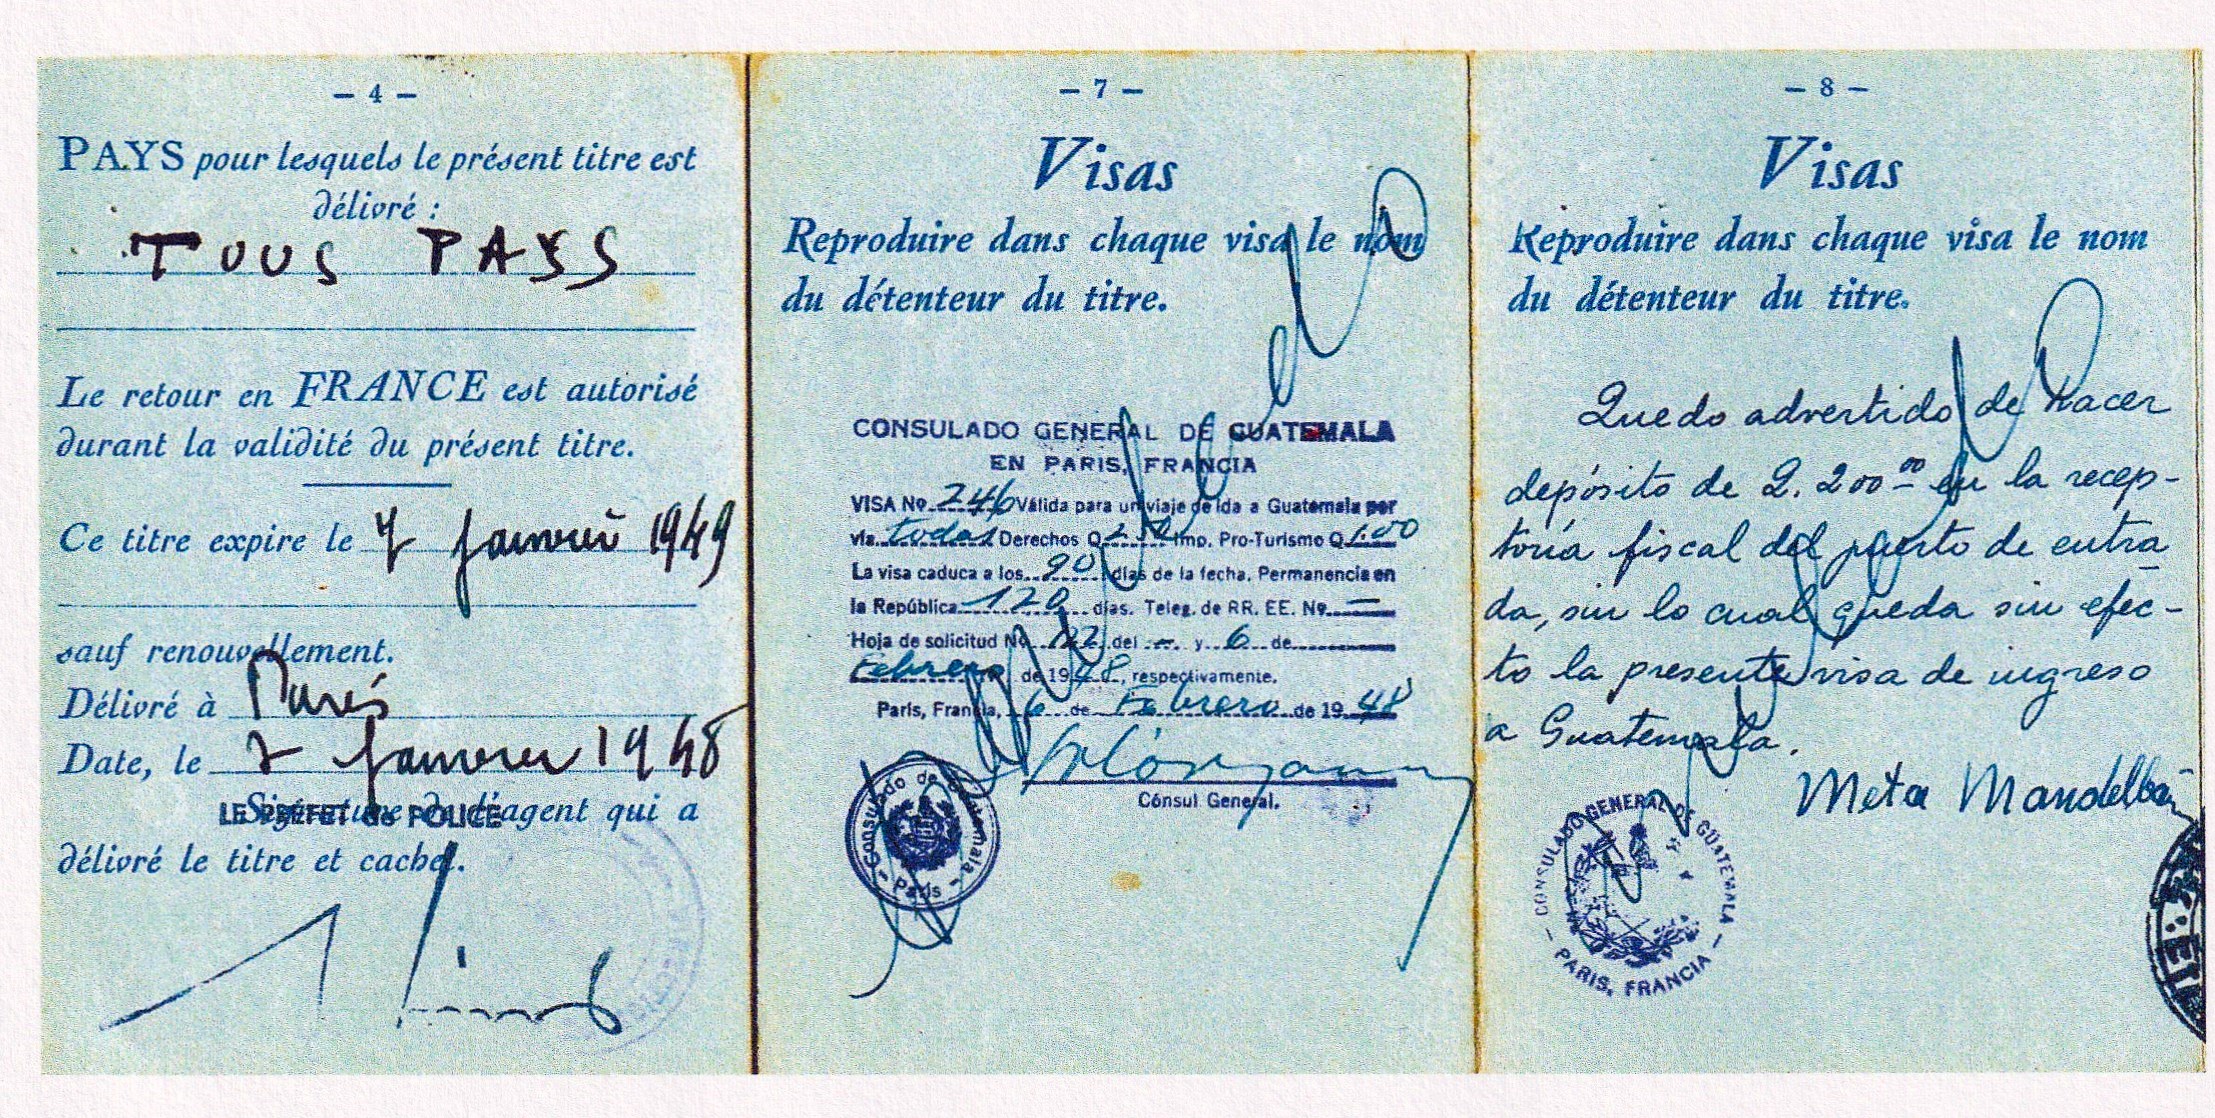 — 4 —
PAYS pour lesquels le présent titre est
délivré :
TOUS PAYS
Le retour en FRANCE est autorisé
durant la validité du présent titre.
Ce titre expire le 7 janvier 1949
sauf renouvellement.
Délivré à Paris
Date, le 7 janvier 1948
LE PREFET de POLICE
Signature de l'agent qui a
délivré le titre et cachet.
— 7 —
Visas
Reproduire dans chaque visa le nom
du détenteur du titre.
CONSULADO GENERAL DE GUATEMALA
EN PARIS, FRANCIA
VISA No. 246 Válida para un viaje de ida a Guatemala por
vía todas Derechos Q 2.50 Imp. Pro-Turismo Q 1.00
La visa caduca a los 90 días de la fecha. Permanencia en
la República 120 días. Teleg. de RR. EE. No. —
Hoja de solicitud No 122 del — y 6 de
Febrero de 1948, respectivamente.
París, Francia, 6 de Febrero de 1948
Cónsul General.
Consulado de Guatemala
— París —
— 8 —
Visas
Reproduire dans chaque visa le nom
du détenteur du titre.
Quedo advertido de hacer
depósito de Q. 200.00 en la recep-
toría fiscal del puerto de entra-
da, sin lo cual queda sin efec-
to la presente visa de ingreso
a Guatemala.
Meta Mandelbaum
CONSULADO GENERAL DE GUATEMALA
— PARIS, FRANCIA —